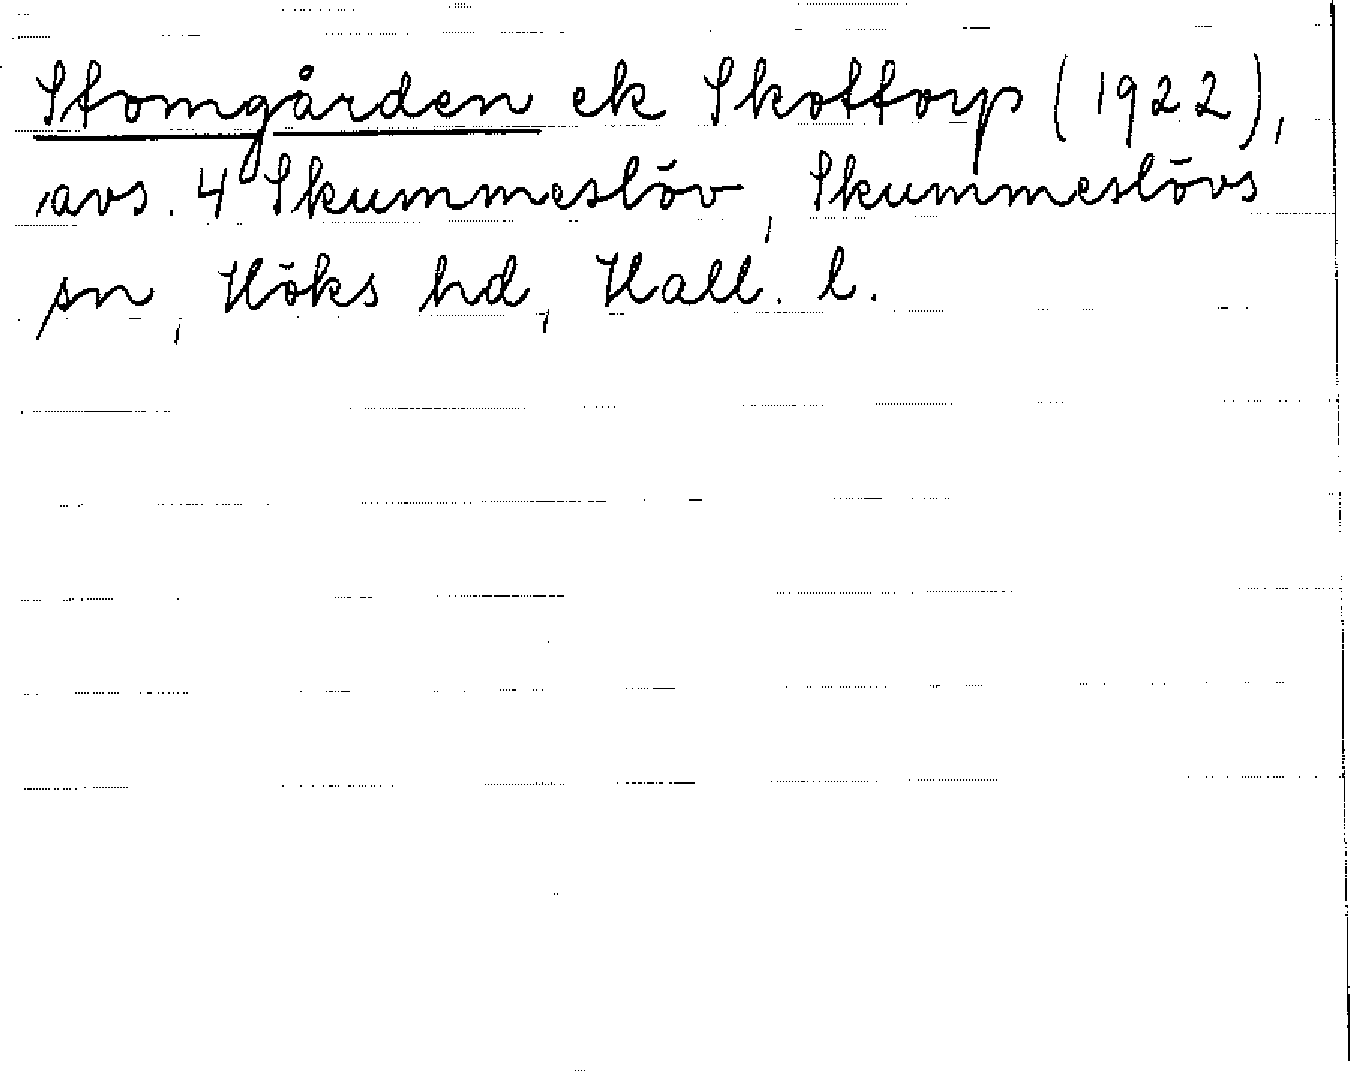 Stomgården ek Skottorp (1922),
avs. 4 Skummeslöv, Skummeslövs
sn, Höks hd, Hall. l.